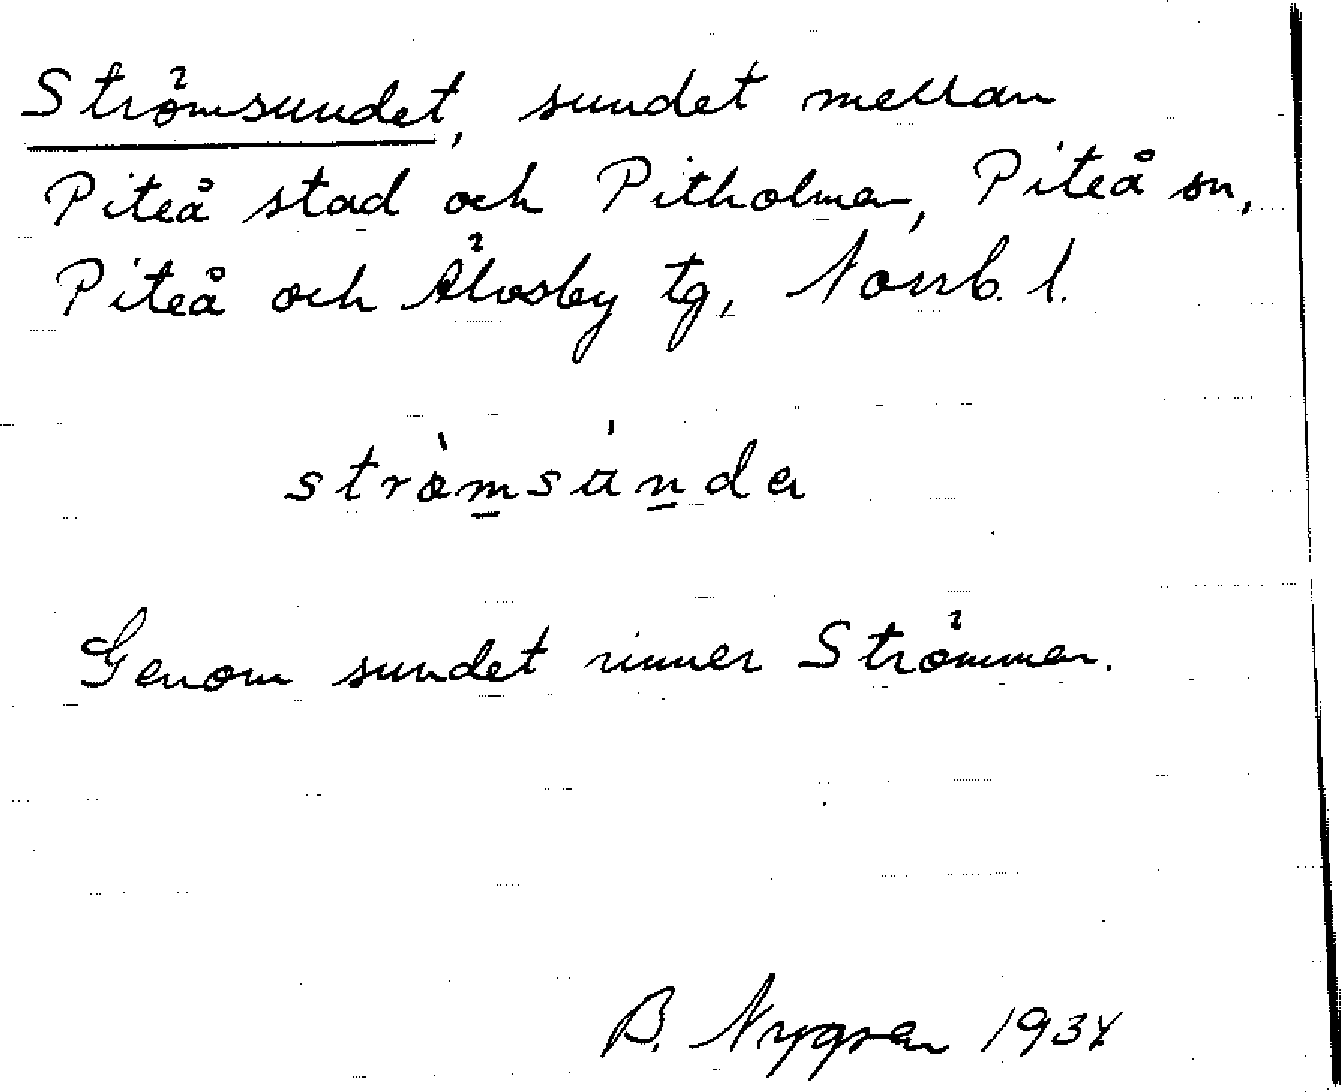 Strömsundet, sundet mellan
Piteå stad och Pitholmen, Piteå sn,
Piteå och Älvsby tg, Norrb. l.
strömsúndɐ
Genom sundet rinner Strömmen.
B. Nygren 1934